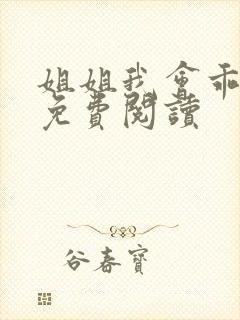 姐姐我會乖
免費閱讀
谷春寶